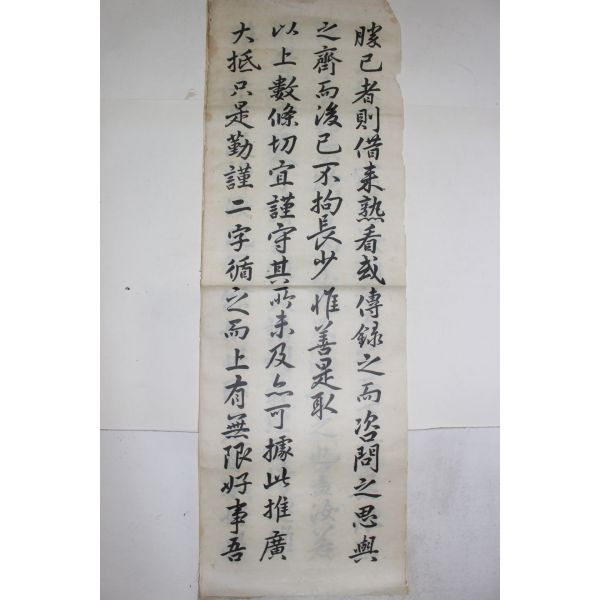 勝己者則借来熟看或傳錄之而咨問之思與
之齊而後已不拘長少惟善是取
以上數條切宜謹守其所未及亦可據此推廣
大抵只是勤謹二字循之而上有無限好事吾